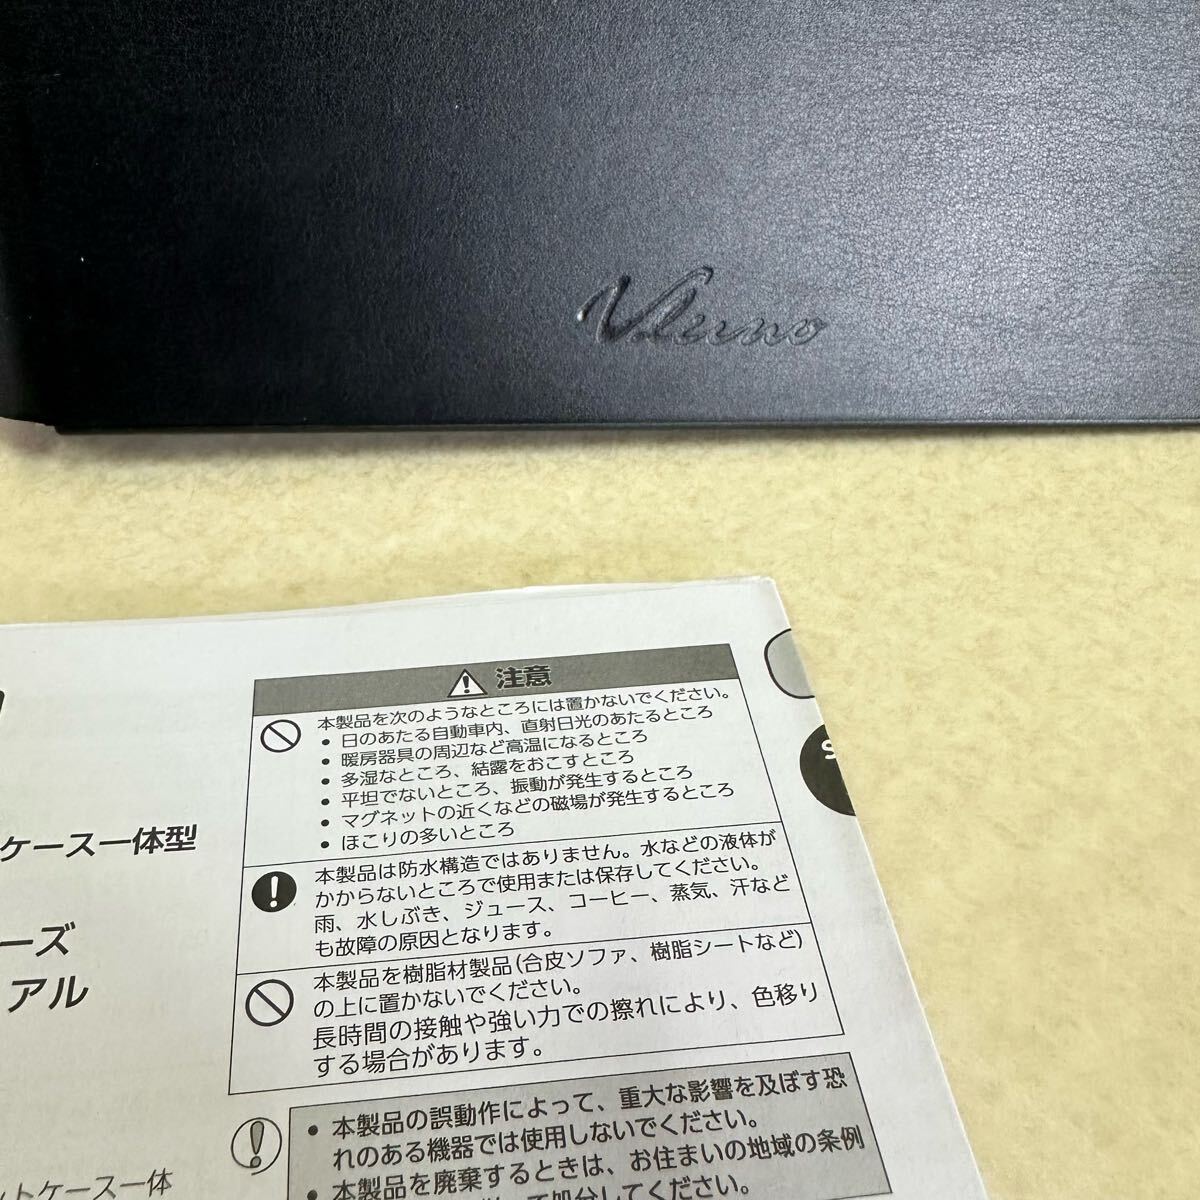 Vlerno
注意
本製品を次のようなところには置かないでください。
• 日のあたる自動車内、直射日光のあたるところ
• 暖房器具の周辺など高温になるところ
• 多湿なところ、結露をおこすところ
• 平坦でないところ、振動が発生するところ
• マグネットの近くなどの磁場が発生するところ
• ほこりの多いところ
本製品は防水構造ではありません。水などの液体が
かからないところで使用または保存してください。
雨、水しぶき、ジュース、コーヒー、蒸気、汗など
も故障の原因となります。
本製品を樹脂材製品(合皮ソファ、樹脂シートなど)
の上に置かないでください。
長時間の接触や強い力での擦れにより、色移り
する場合があります。
• 本製品の誤動作によって、重大な影響を及ぼす恐
れのある機器では使用しないでください。
• 本製品を廃棄するときは、お住まいの地域の条例
処分してください。
ケース一体型
ーズ
アル
ットケース一体